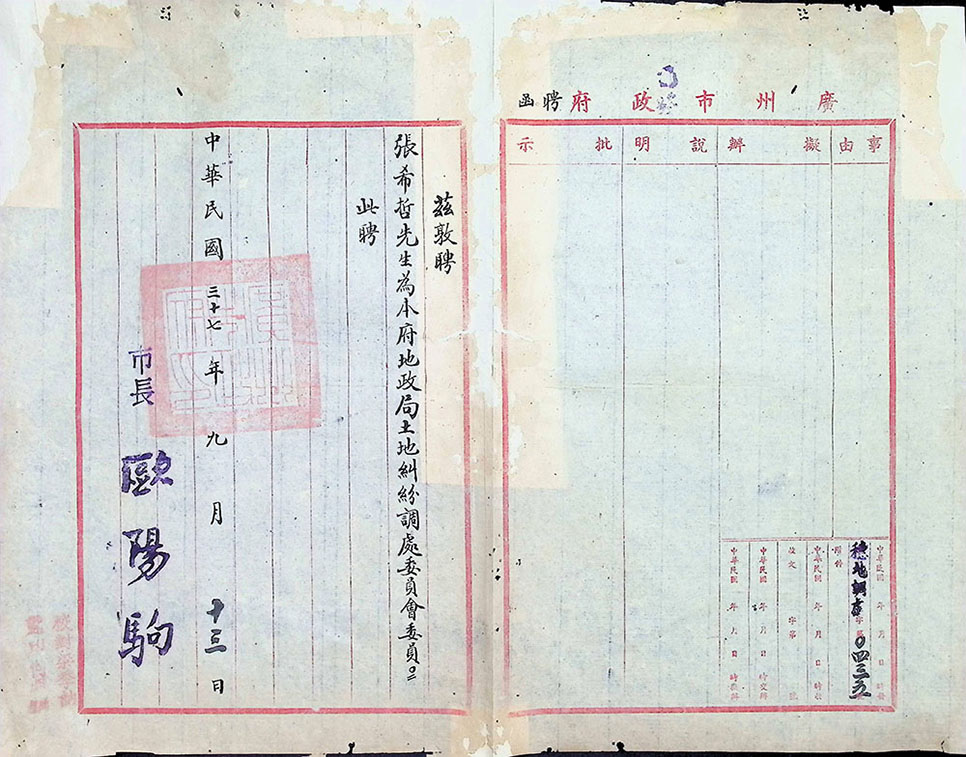 廣州市政府聘函
事由
擬辦
說明
批示
中華民國 年 月 日 時
附件
穗地調 字第 0四三五
中華民國 年 月 日 時
收文 字第 號
中華民國 年 月 日 時
中華民國 年 月 日 時
茲敦聘
張希哲先生為本府地政局土地糾紛調處委員會委員。
此聘
中華民國三十七年九月十三日
市長 歐陽駒